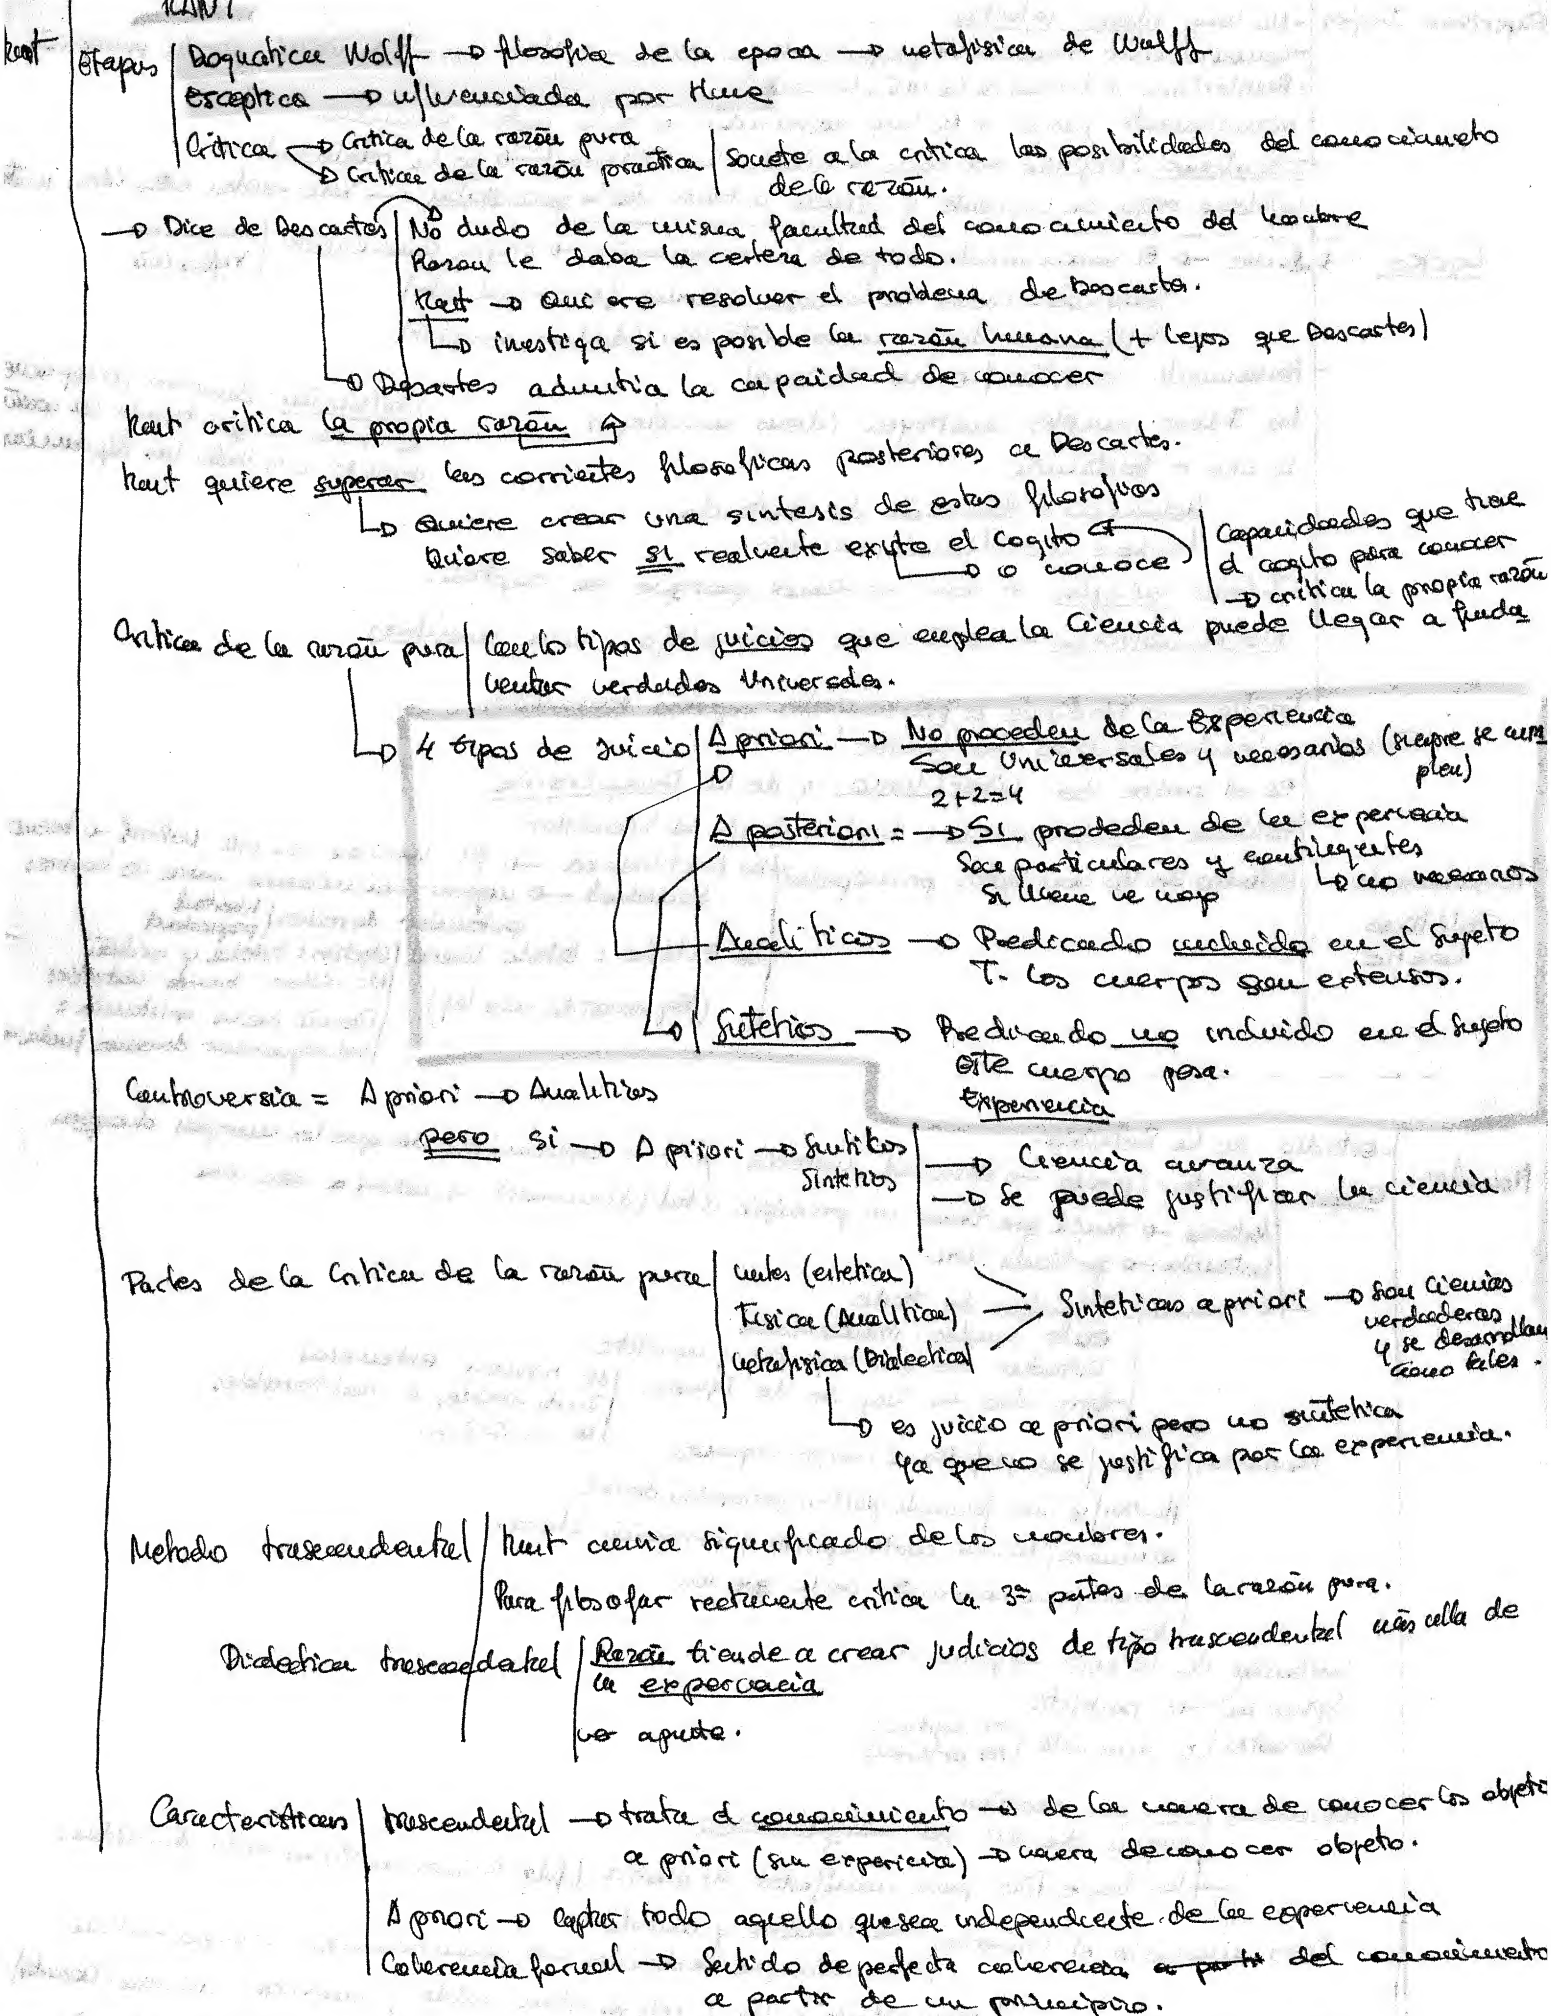 KANT
Kant Etapas Dogmatica Wolff → filosofia de la epoca → metafisica de Wolff
esceptica → influenciada por Hume
Critica → Critica de la razón pura
→ Critica de la razón practica
Somete a la critica las posibilidades del conocimiento
de la razón.
→ Dice de Descartes No dudo de la misma facultad del conocimiento del hombre
Razon le daba la certeza de todo.
Kant → Quiere resolver el problema de Descartes.
→ investiga si es posible la razón humana (+ lejos que Descartes)
→ Descartes admitia la capacidad de conocer
Kant critica la propia razón
Kant quiere superar las corrientes filosoficas posteriores a Descartes.
→ Quiere crear una sintesis de estas filosofias
Quiere saber si realmente existe el cogito
→ o conoce
Capacidades que trae
el cogito para conocer
→ critica la propia razón
Critica de la razón pura Con los tipos de juicios que emplea la Ciencia puede llegar a funda
mentar verdades Universales.
→ 4 tipos de juicio A priori → No proceden de la Experiencia
Son Universales y necesarios (siempre se cum
plen)
2+2=4
A posteriori = → SI prodeden de la experiencia
Son particulares y contingentes
→ no necesarios
Si llueve me mojo
Analiticos → Predicado incluido en el Sujeto
T. los cuerpos son extensos.
Sintetios → Predicado no incluido en el Sujeto
este cuerpo pesa.
Experiencia
Controversia = A priori → Analitios
pero si → A priori → Sintikos
Sintetios
→ Ciencia avanza
→ Se puede justificar la ciencia
Partes de la Critica de la razón pura mates (estetica)
Fisica (Analitica)
metafisica (Dialectica)
Sinteticas a priori → Son Ciencias
verdaderas
y se desarrollan
como tales.
→ es juicio a priori pero no sintetica
ya que no se justifica por la experiencia.
Metodo trascendental Kant cambia significado de los nombres.
Para filosofar rectamente critica la 3ª partes de la razón pura.
Dialectica trascendental Razón tiende a crear judicios de tipo trascendental más alla de
la experiencia
Caracteristicas trascendental → trata el conocimiento → de la manera de conocer los objeti
a priori (sin expericia) → manera de conocer objeto.
A priori → captar todo aquello que sea independiente de la experiencia
Coherencia formal → Sentido de perfecta coherencia a partir del conocimiento
a partir de un principio.